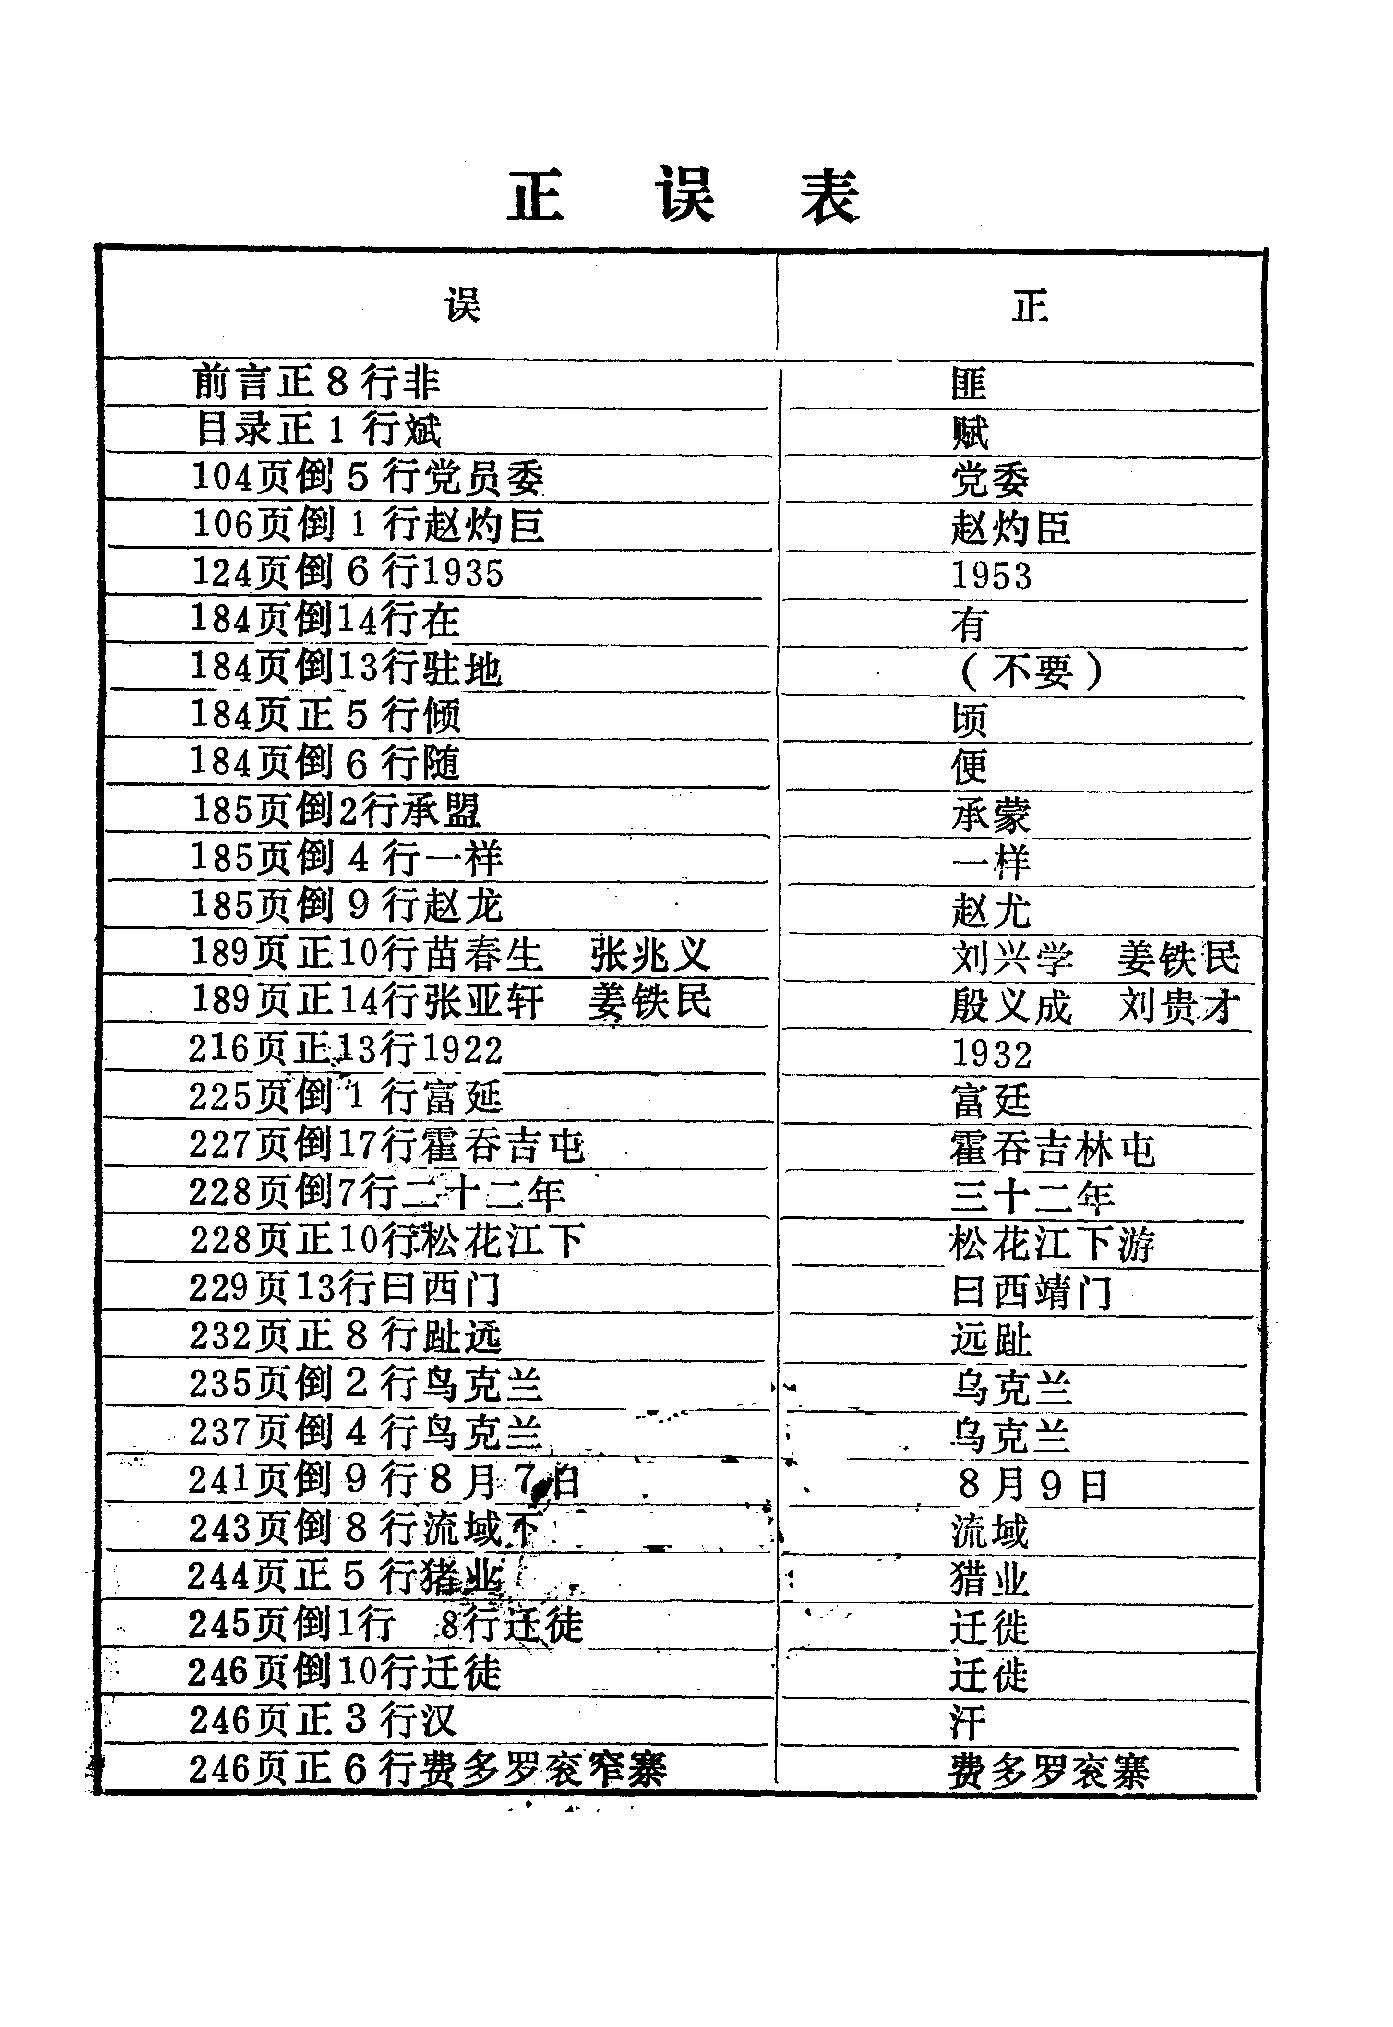 正 误 表
误 正
前言正8行非 匪
目录正1行斌 赋
104页倒5行党员委 党委
106页倒1行赵灼巨 赵灼臣
124页倒6行1935 1953
184页倒14行在 有
184页倒13行驻地 （不要）
184页正5行倾 顷
184页倒6行随 便
185页倒2行承盟 承蒙
185页倒4行一祥 一样
185页倒9行赵龙 赵尤
189页正10行苗春生 张兆义 刘兴学 姜铁民
189页正14行张亚轩 姜铁民 殷义成 刘贵才
216页正13行1922 1932
225页倒1行富延 富廷
227页倒17行霍吞吉屯 霍吞吉林屯
228页倒7行二十二年 三十二年
228页正10行松花江下 松花江下游
229页13行曰西门 曰西靖门
232页正8行趾远 远趾
235页倒2行鸟克兰 乌克兰
237页倒4行鸟克兰 乌克兰
241页倒9行8月7日 8月9日
243页倒8行流域下 流域
244页正5行猪业 猎业
245页倒1行 8行迁徒 迁徙
246页倒10行迁徒 迁徙
246页正3行汉 汗
246页正6行费多罗衮窄寨 费多罗衮寨